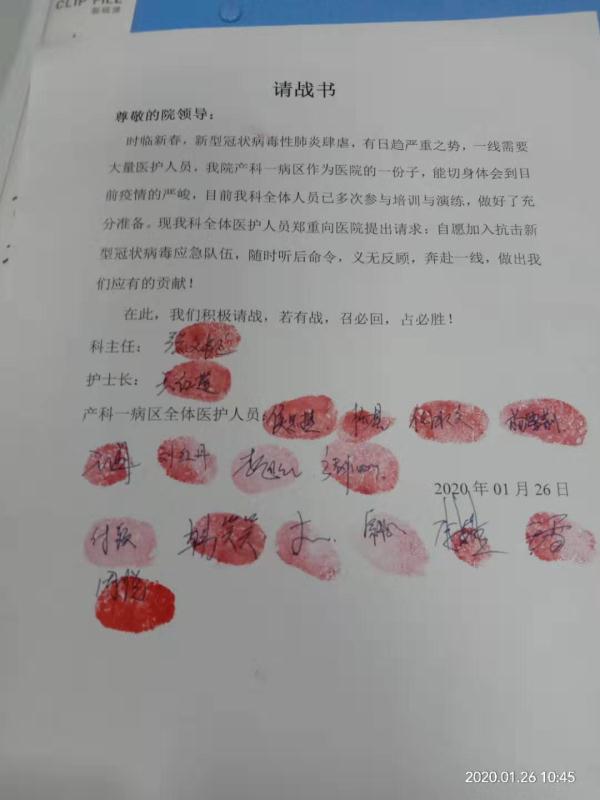 CLIP FILE
请战书
尊敬的院领导：
时临新春，新型冠状病毒性肺炎肆虐，有日趋严重之势，一线需要
大量医护人员，我院产科一病区作为医院的一份子，能切身体会到目
前疫情的严峻，目前我科全体人员已多次参与培训与演练，做好了充
分准备。现我科全体医护人员郑重向医院提出请求：自愿加入抗击新
型冠状病毒应急队伍，随时听后命令，义无反顾，奔赴一线，做出我
们应有的贡献！
在此，我们积极请战，若有战，召必回，占必胜！
科主任：
护士长：
产科一病区全体医护人员：
2020 年 01 月 26 日
韩笑笑
周悦
2020.01.26 10:45